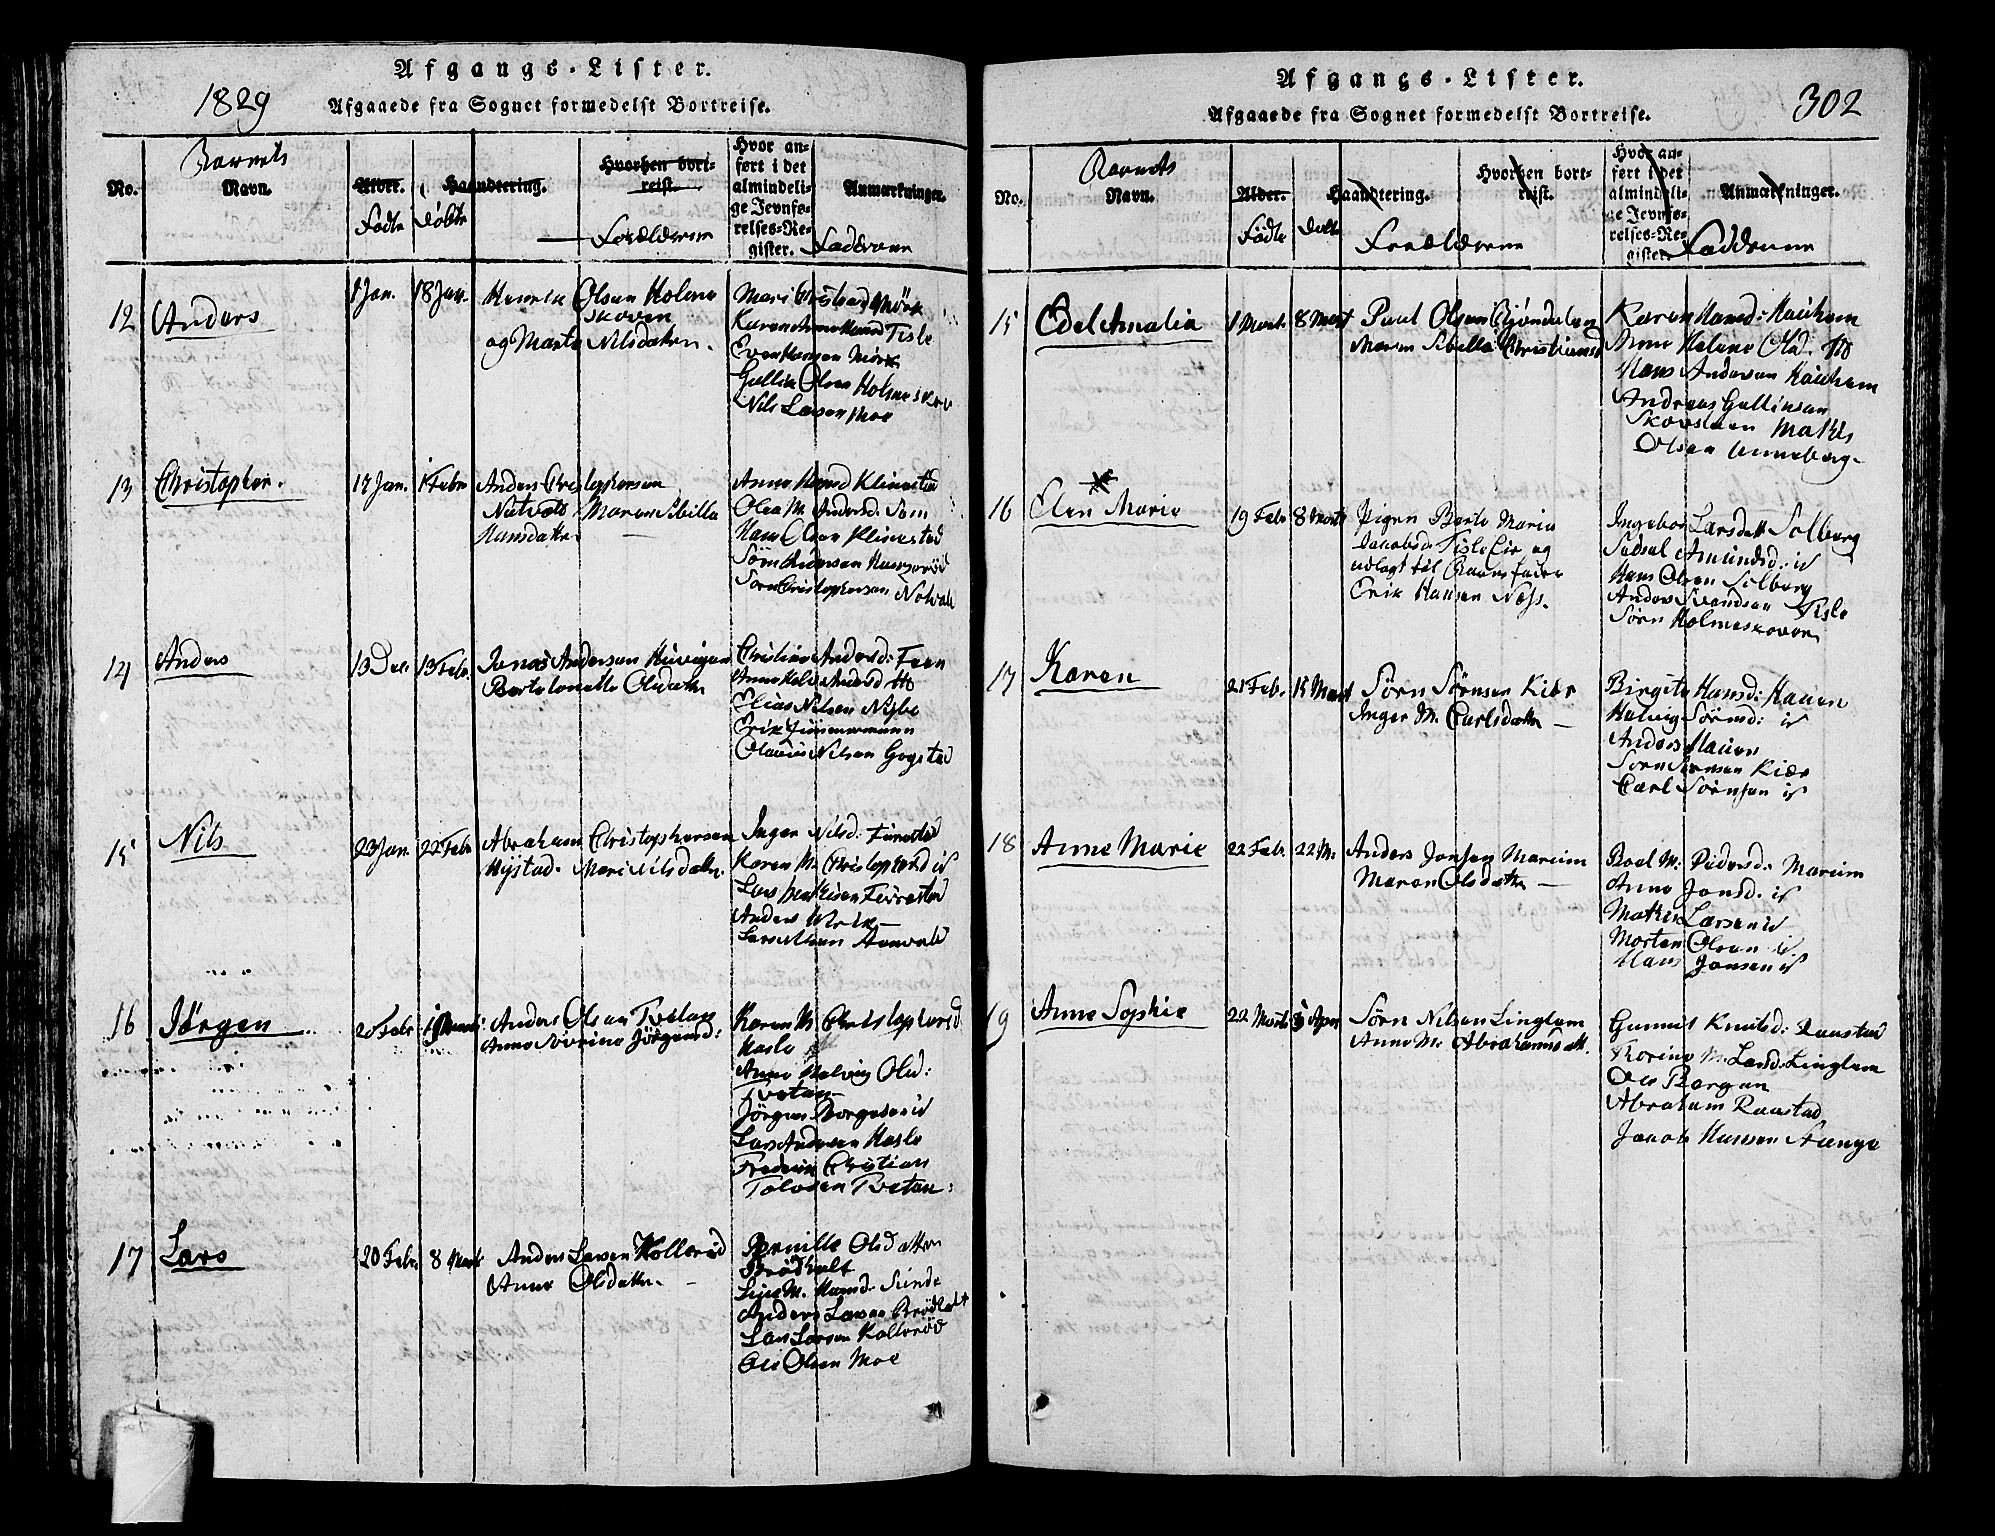 Afgangs-Lister.
1829
Afgaaede fra Sognet formedelst Bortreise.
No.
Barnets
Navn.
Alder.
Fødte
Døbte
Haandtering.
Hvorhen bort-
reist.
Forældrene
Hvor an-
ført i det
almindeli-
ge Jevnfø-
relses-Re-
gister.
Anmærkninger.
Fadderne
12
Anders
1 Jan.
18 Jan.
Henrik Olsen Holme
skoven
og Marte Nilsdatter.
Mari Mörk
Karen Anne Tisle
Even Hansen Mörk
Gullik Olsen Holmeskov
Nils Larsen Moe
13
Christopher.
17 Jan.
1 Febr
Anders Christophersen
Natvald Maren Sibilla
Hansdatter
Anne Hansd Klinestad
Olea M. Andersd. Sem
Hans Olsen Klinestad
Sörn Andersen
Sörn Christophersen Natvald
14
Anders
13 Dec.
13 Febr.
Jonas Andersen
Olsdatter
Christiane Andersd: Feen
Anne Andersd
Elias Nilsen
Erik Timmermann
Olavus Nilsen Gogstad
15
Nils
23 Jan.
22 Febr
Abraham Christophersen
Mystad. Mari Nilsdatter.
Inger Nilsd:
Karen M. Christophersd id
Lars Mathisen
Anders
Lars
16
Jørgen
2 Febr
1 Marts
Anders Olsen Tvetan
Anne Sevrine Jörgensd:
Karen M Christophersd
Hasle
Anne Helvig Olsd:
Tvetan
Jörgen Borgesen id
Lars Andersen Hasle
Frederik Christian
Tolvsen Tvetan
17
Lars
20 Febr.
8 Marts
Anders Larsen Kollerød
Anne Olsdatter.
Pernille Olsdatter
Brödholt
M. Hansd. Sunde
Anders Larsen Brödholt
Lars Larsen Kollerød
Ole Olsen Moe
Afgangs-Lister.
302
Afgaaede fra Sognet formedelst Bortreise.
No.
Barnets
Navn.
Alder.
Födte
Døbte
Haandtering.
Hvorhen bort-
reist.
Forældrene
Hvor an-
ført i det
almindeli-
ge Jevnfø-
relses-Re-
gister.
Anmærkninger.
Fadderne
15
Edel Amalia
1 Mart.
8 Mart
Paul Olsen Gjöndalen
Maren Sibilla Christiansd
Karen Hansd: Haughem
Anne Helene Olsd.
Hans Andersen Haughem
Andreas Gullinsen
Skovsteen Mathis
Olsen Unneberg.
16
Elen Marie
19 Febr
8 Marts
Pigen Berte Maria
Jacobsd: Tisle Eie og
udlagt til Barnefader
Erik Hansen Næss.
Ingebor Larsdatt Solberg
Sidsel Amundsd: id
Hans Olsen Solberg
Anders Svendsen Tisle
Sörn Holmeskoven
17
Karen
21 Feb.
15 Mart
Sörn Sörnsen Kiær
Inger M. Carlsdatter
Birgite Hansd: Hauen
Helvig Sörnsd: id
Anders Hauen
Sörn Sörnsen Kiær
Carl Sörnsen id
18
Anne Marie
22 Feb.
22 M.
Anders Jonsen Marum
Maren Olsdatter
Boel M. Pedersd: Marum
Anne Jonsd. id
Mathis Larsen id
Morten Olsen id.
Hans Jonsen id
19
Anne Sophie
22 Marts
5 Apr
Sörn Nilsen Linglem
Anne M. Abrahamsdtt.
Gunnil Knudsd: Raastad
Thorine M. Larsd: Linglem
Ole Bergan
Abraham Raastad
Jacob Hansen Stange